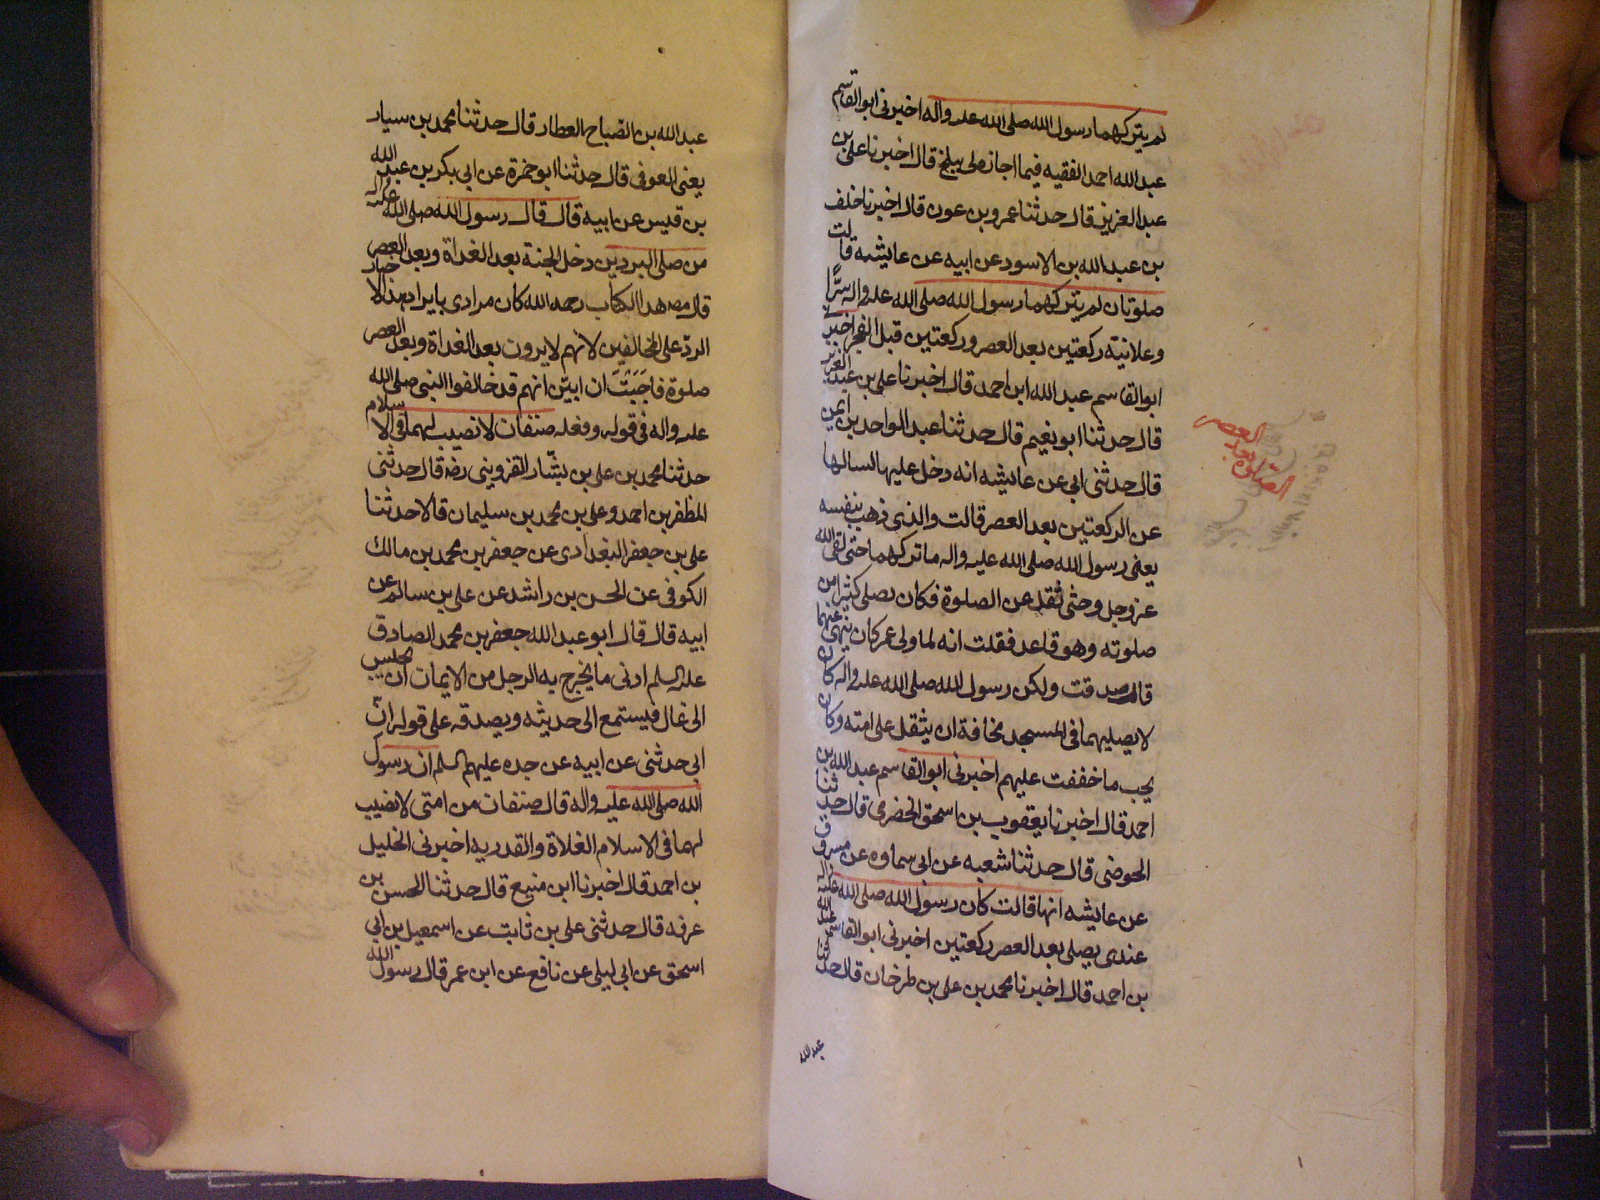 لم يتركهما رسول الله صلى الله عليه واله اخبرني ابو القاسم
عبد الله احمد الفقيه فيما اجازه لي ببلخ قال اخبرنا علي بن
عبد العزيز قال حدثنا عمرو بن عون قال اخبرنا خلف
بن عبد الله بن الاسود عن ابيه عن عايشه قالت
صلوتان لم يتركهما رسول الله صلى الله عليه واله سرًّا
وعلانية ركعتين بعد العصر وركعتين قبل الفجر اخبرنا
ابو القاسم عبد الله ابن احمد قال اخبرنا علي بن عبد العزيز
قال حدثنا ابو نعيم قال حدثنا عبد الواحد بن ايمن
قال حدثني ابي عن عايشه انه دخل عليها لسالها
عن الركعتين بعد العصر قالت والذي ذهب بنفسه
يعني رسول الله صلى الله عليه واله ما تركهما حتى لقى الله
عز وجل وحتى ثقل عن الصلوة فكان يصلي كثيرا من
صلوته وهو قاعد فقلت انه لما ولى عمر كان ينهى عنهما
قال صدقت ولكن رسول الله صلى الله عليه واله كان
لا يصليهما في المسجد مخافة ان يثقل على امته وكان
يحب ما خففت عليهم اخبرني ابو القاسم عبد الله بن
احمد قال اخبرنا يعقوب بن اسحق الحضرمي قال حدثنا
الحوضي قال حدثنا شعبه عن ابي عن مسروق
عن عايشه انها قالت كان رسول الله صلى الله عليه واله
عندي يصلي بعد العصر ركعتين اخبرني ابو القاسم عبد الله
بن احمد قال اخبرنا محمد بن علي بن طرخان قال حدثنا
عبد الله
الصلوة بعد العصر
عبد الله بن الصباح العطار قال حدثنا محمد بن سيار
يعني العوفي قال حدثنا ابو حمزة عن ابي بكر بن عبد الله
بن قيس عن ابيه قال قال رسول الله صلى الله عليه واله
من صلى البردين دخل الجنة بعد الغداة وبعد العصر
قال مصـ هذا الكتاب رحمه الله كان مرادي بايراد هذه الاخبار
الرد على المخالفين لانهم لا يرون بعد الغداة وبعد العصر
صلوة فاحببت ان ابين انهم قد خالفوا النبي صلى الله
عليه واله في قوله وفعله صنفان لا نصيب لهما في الاسلام
حدثنا محمد بن علي بن بشّار القزويني رضه قال حدثني
المظفر بن احمد وعلي بن محمد بن سليمان قالا حدثنا
علي بن جعفر البغدادي عن جعفر بن محمد بن مالك
الكوفي عن الحسن بن راشد عن علي بن سالم عن
ابيه قال قال ابو عبد الله جعفر بن محمد الصادق
عليه السلم ادنى ما يخرج به الرجل من الايمان ان يجلس
الى غال فيستمع الى حديثه ويصدقه على قوله انّ
ابي حدثني عن ابيه عن جده عليهم السلم ان رسول
الله صلى الله عليه واله قال صنفان من امتى لا نصيب
لهما في الاسلام الغلاة والقدريه اخبرني الخليل
بن احمد قال اخبرنا ابن منيع قال حدثنا الحسن بن
عرفه قال حدثني علي بن ثابت عن اسمعيل بن ابي
اسحق عن ابي ليلى عن نافع عن ابن عمر قال رسول الله